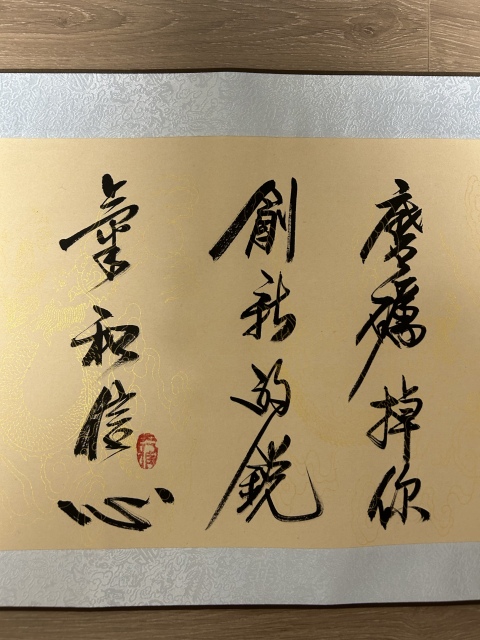 磨礪掉你
創新的鋭
氣和信心